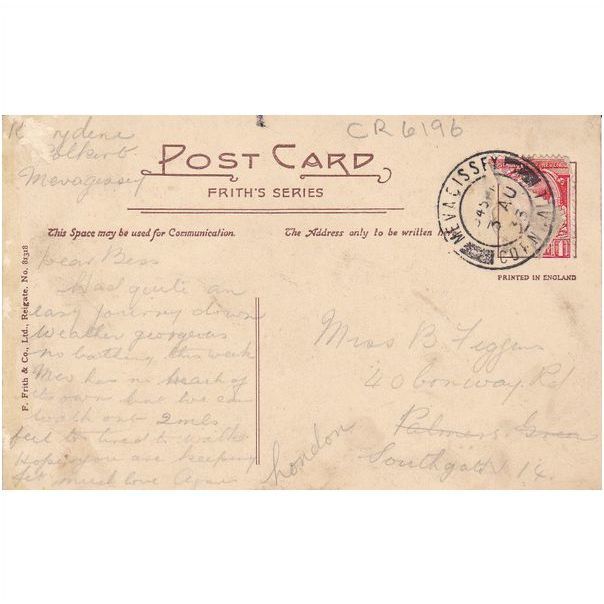 CR 6196
Mevagissey
POST CARD
FRITH'S SERIES
MEVAGISSEY
AU
This Space may be used for Communication.
The Address only to be written
PRINTED IN ENGLAND
F. Frith & Co., Ltd., Reigate. No. 81318
Dear Bess
Had quite an
easy journey down
Weather georgeous
no bathing this week
Mev has no beach of
its own but we can
walk out 2 mls
felt too tired to walk
Hope you are keeping
fit much love
Miss B. Figgins
40 Conway Rd
Palmers Green
Southgate N 14.
London